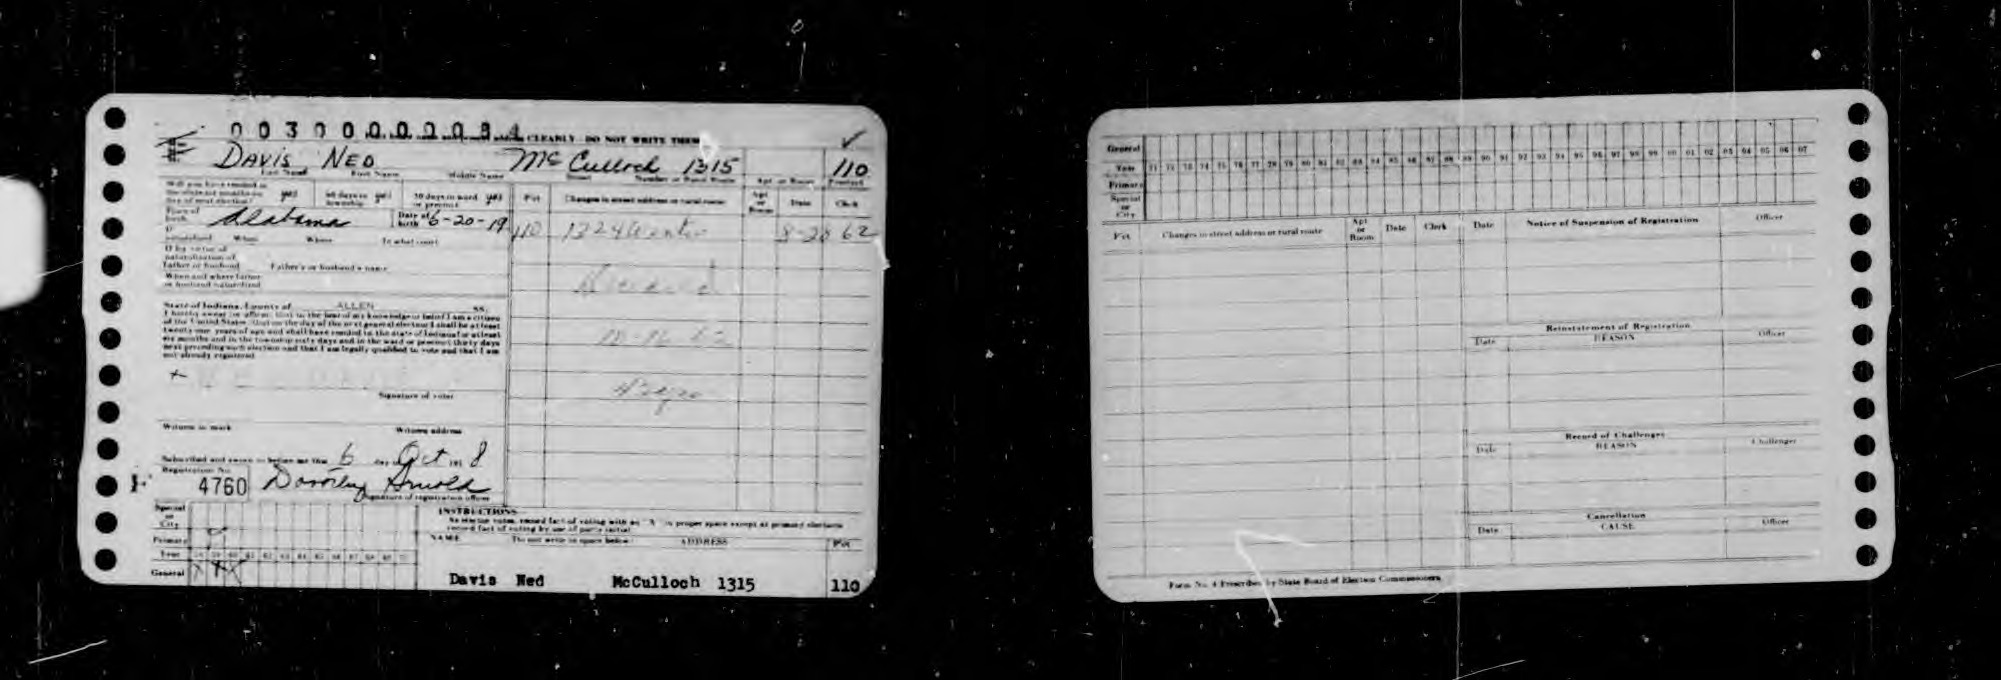 0030000004 CLEARLY - DO NOT WRITE THEM
DAVIS NED McCulloch 1315 110
Last Name First Name Middle Name Street Number or Rural Route Apt. or Room Precinct
Will you have resided in the state six months on day of next election? yes 60 days in township yes 30 days in ward or precinct yes
Pct Changes in street address or rural route Apt or Room Date Clerk
Place of birth Alabama Date of birth 6-20-19
110 1324 8-20 62
If naturalized When Where In what court
If by virtue of naturalization of father or husband Father's or husband's name
When and where father or husband naturalized
10-16 62
State of Indiana, County of ALLEN SS:
I hereby swear (or affirm) that to the best of my knowledge or belief I am a citizen
of the United States, that on the day of the next general election I shall be at least
twenty-one years of age and shall have resided in the state of Indiana for at least
six months and in the township sixty days and in the ward or precinct thirty days
next preceding such election and that I am legally qualified to vote and that I am
not already registered
Signature of voter
Witness to mark Witness address
Subscribed and sworn to before me this 6 day of Oct 195 8
Registration No. 4760 Dorothy Arnold
Signature of registration officer
Special or City
Primary
Year 58 59 60 61 62 63 64 65 66 67 68 69 70
General X X X
INSTRUCTIONS
record fact of voting by use of party initial
NAME Do not write in space below ADDRESS Pct
Davis Ned McCulloch 1315 110
General
Year 71 72 73 74 75 76 77 78 79 80 81 82 83 84 85 86 87 88 89 90 91 92 93 94 95 96 97 98 99 00 01 02 03 04 05 06 07
Primary
Special or City
Pct Changes in street address or rural route Apt or Room Date Clerk
Date Notice of Suspension of Registration Officer
Reinstatement of Registration
Date REASON Officer
Record of Challenges
Date REASON Challenger
Cancellation
Date CAUSE Officer
Form No. 4 Prescribed by State Board of Election Commissioners